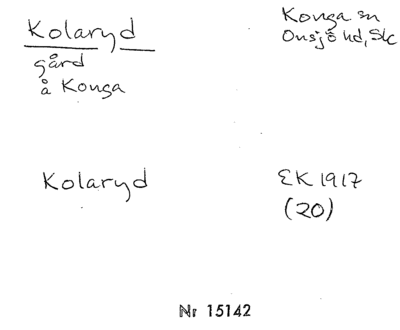 Kolaryd
gård
å Konga
Konga sn
Onsjö hd, Skc
Kolaryd
EK 1917
(20)
Nr 15142